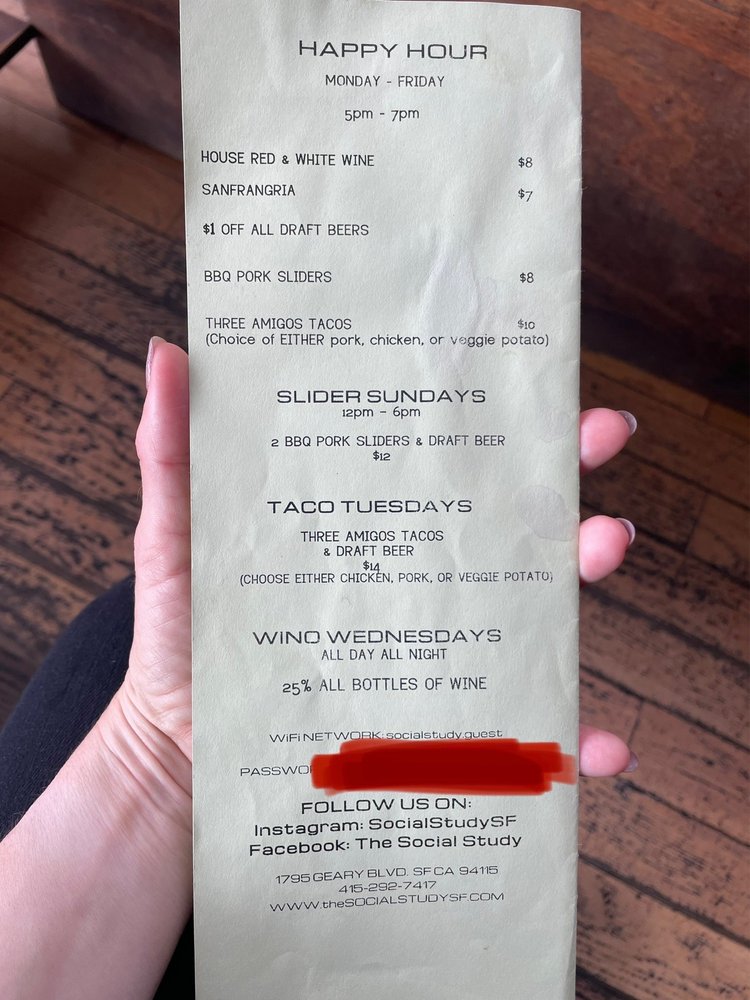 HAPPY HOUR
MONDAY - FRIDAY
5pm - 7pm
HOUSE RED & WHITE WINE $8
SANFRANGRIA $7
$1 OFF ALL DRAFT BEERS
BBQ PORK SLIDERS $8
THREE AMIGOS TACOS $10
(Choice of EITHER pork, chicken, or veggie potato)
SLIDER SUNDAYS
12pm - 6pm
2 BBQ PORK SLIDERS & DRAFT BEER
$12
TACO TUESDAYS
THREE AMIGOS TACOS
& DRAFT BEER
$14
(CHOOSE EITHER CHICKEN, PORK, OR VEGGIE POTATO)
WINO WEDNESDAYS
ALL DAY ALL NIGHT
25% ALL BOTTLES OF WINE
WiFi NETWORK: socialstudy.guest
FOLLOW US ON:
Instagram: SocialStudySF
Facebook: The Social Study
1795 GEARY BLVD. SF CA 94115
415-292-7417
WWW.theSOCIALSTUDYSF.COM